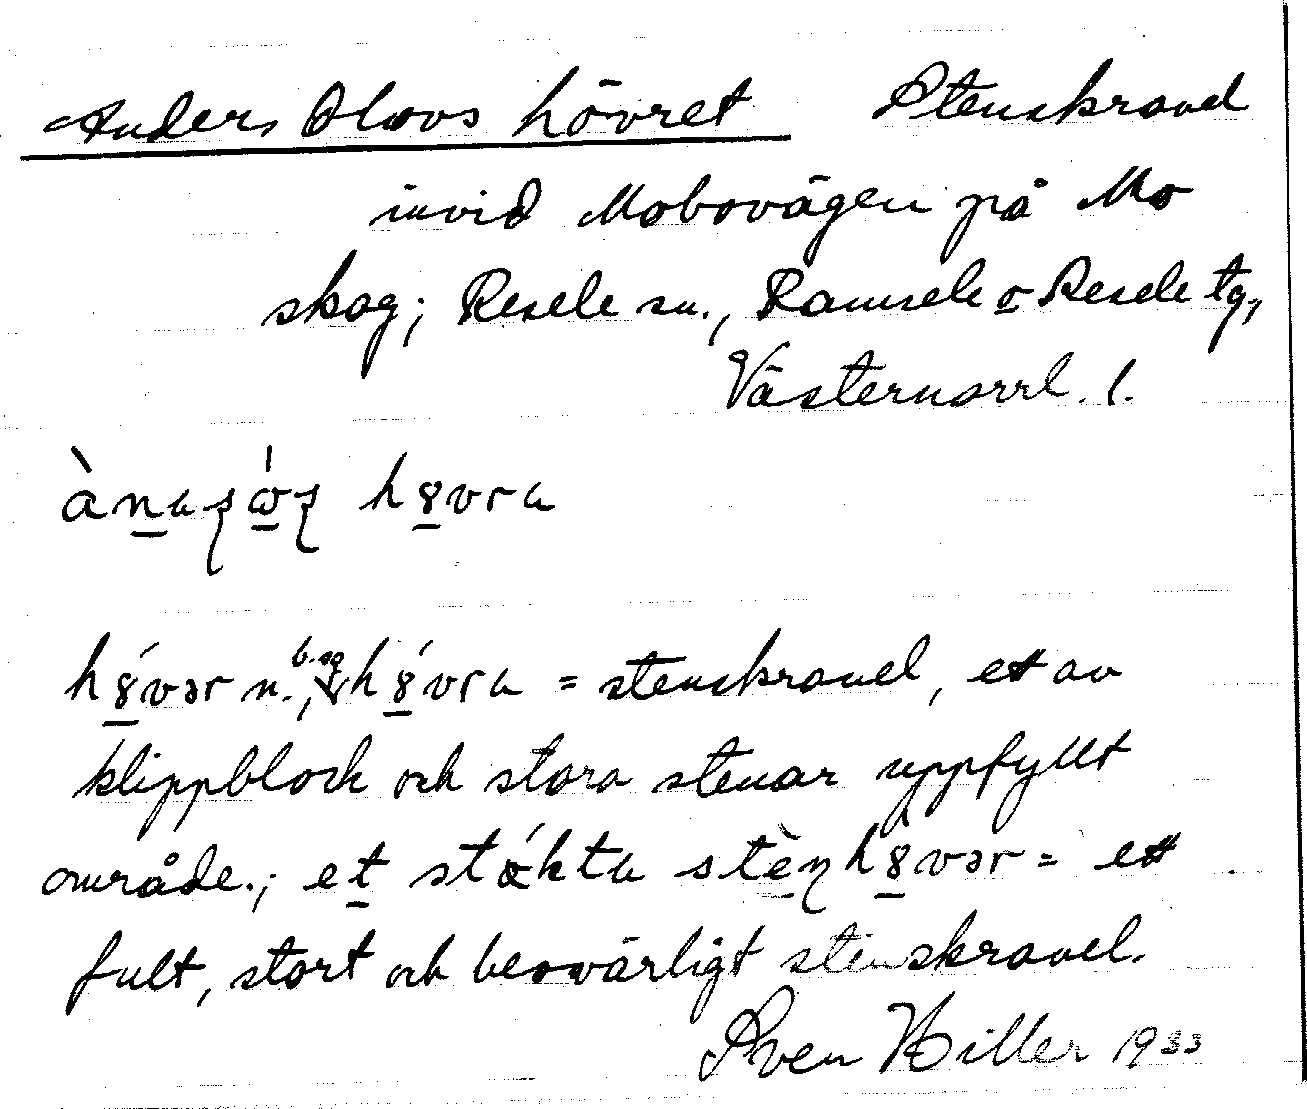 Anders Olovs hövret Stenskravel
invid Mobovägen på Mo
skog; Resele sn., Ramsele o Resele tg,
Västernorrl. l.
hǿvər n., b. sg hǿvra = stenskravel, ett av
klippblock och stora stenar uppfyllt
område.; et stǽkta stènhøvər = ett
fult, stort och besvärligt stenskravel.
Sven Hiller 1933